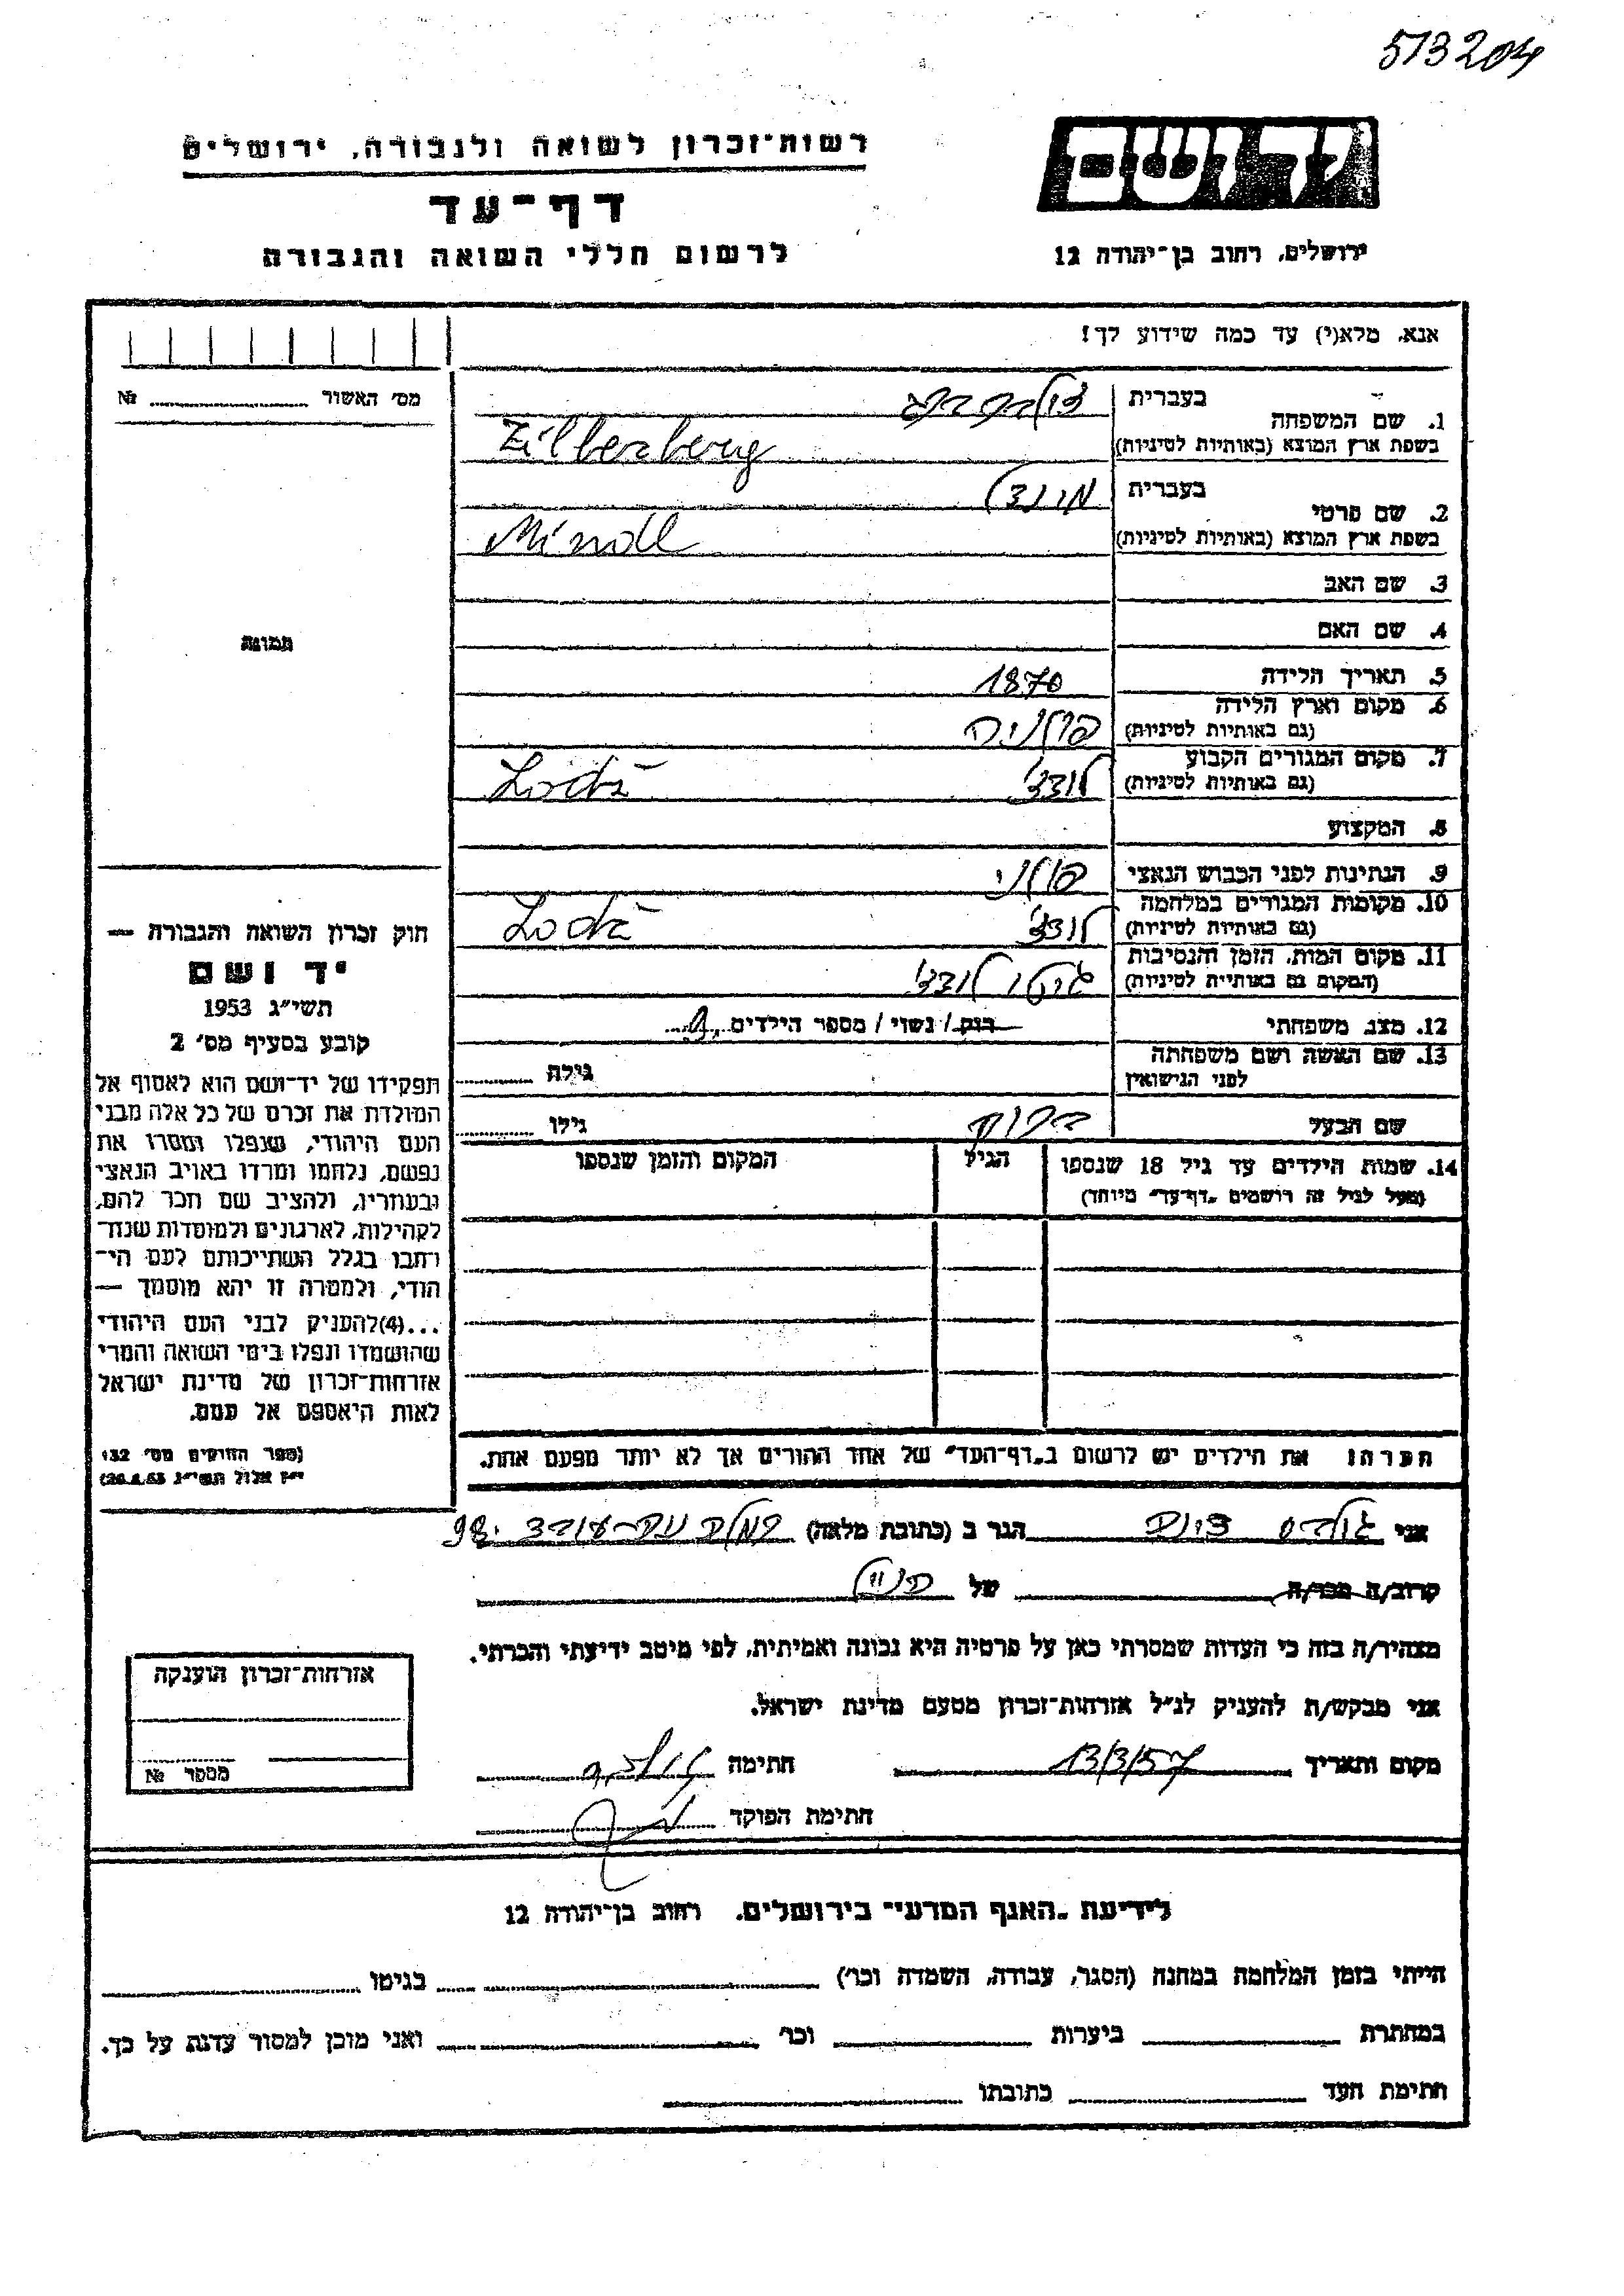 513204
רשות־זכרון לשואה ולגבורה, ירושלים
יד ושם
דף־עד
לרשום חללי השואה והגבורה
ירושלים, רחוב בן־יהודה 12
אנא, מלא(י) עד כמה שידוע לך!
מס׳ האשור № 
1. שם המשפחה בעברית זילברברג
בשפת ארץ המוצא (באותיות לטיניות) Zilberberg
2. שם פרטי בעברית מינדל
בשפת ארץ המוצא (באותיות לטיניות) Mindl
3. שם האב
4. שם האם
תמונה
5. תאריך הלידה 1870
6. מקום וארץ הלידה (גם באותיות לטיניות) פולניה
7. מקום המגורים הקבוע (גם באותיות לטיניות) לודז׳ Lodź
8. המקצוע
9. הנתינות לפני הכבוש הנאצי פולני
10. מקומות המגורים במלחמה (גם באותיות לטיניות) לודז׳ Lodź
11. מקום המות, הזמן והנסיבות (המקום גם באותיות לטיניות) גיטו לודז׳
12. מצב משפחתי רווק / נשוי / מספר הילדים
13. שם האשה ושם משפחתה לפני הנישואין גילה
שם הבעל ברוך גילו
14. שמות הילדים עד גיל 18 שנספו הגיל המקום והזמן שנספו
(מעל לגיל זה רושמים „דף־עד״ מיוחד)
חוק זכרון השואה והגבורה —
יד ושם
תשי״ג 1953
קובע בסעיף מס׳ 2
תפקידו של יד־ושם הוא לאסוף אל
המולדת את זכרם של כל אלה מבני
העם היהודי, שנפלו ומסרו את
נפשם, נלחמו ומרדו באויב הנאצי
ובעוזריו, ולהציב שם וזכר להם,
לקהילות, לארגונים ולמוסדות שנח־
רבו בגלל השתייכותם לעם הי־
הודי, ולמטרה זו יהא מוסמך —
...(4)להעניק לבני העם היהודי
שהושמדו ונפלו בימי השואה והמרי
אזרחות־זכרון של מדינת ישראל
לאות היאספם אל עמם.
(ספר החוקים מס׳ 132
י״ז אלול תשי״ג 28.8.53)
הערה: את הילדים יש לרשום ב„דף־העד״ של אחד ההורים אך לא יותר מפעם אחת.
אני הגר ב (כתובת מלאה) 98
קרוב/ה מכר/ה של
מצהיר/ה בזה כי העדות שמסרתי כאן על פרטיה היא נכונה ואמיתית, לפי מיטב ידיעתי והכרתי.
אני מבקש/ת להעניק לנ״ל אזרחות־זכרון מטעם מדינת ישראל.
מקום ותאריך 13/3/57 חתימה
חתימת הפוקד
אזרחות־זכרון הוענקה
מספר №
לידיעת „האגף המדעי״ בירושלים, רחוב בן־יהודה 12
הייתי בזמן המלחמה במחנה (הסגר, עבודה, השמדה וכו׳) בגיטו
במחתרת ביערות וכו׳ ואני מוכן למסור עדות על כך.
חתימת העד כתובתו